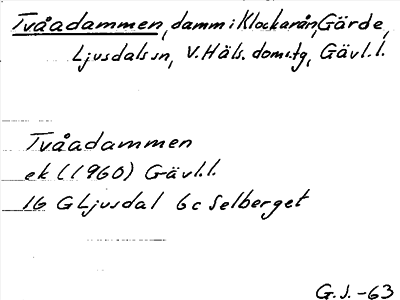 Tvåadammen, damm i Klockarån, Gärde,
Ljusdals sn, V. Häls. doms.tg, Gävl. l.
Tvåadammen
ek (1960) Gävl. l.
16 G Ljusdal 6c Selberget
G. J. -63